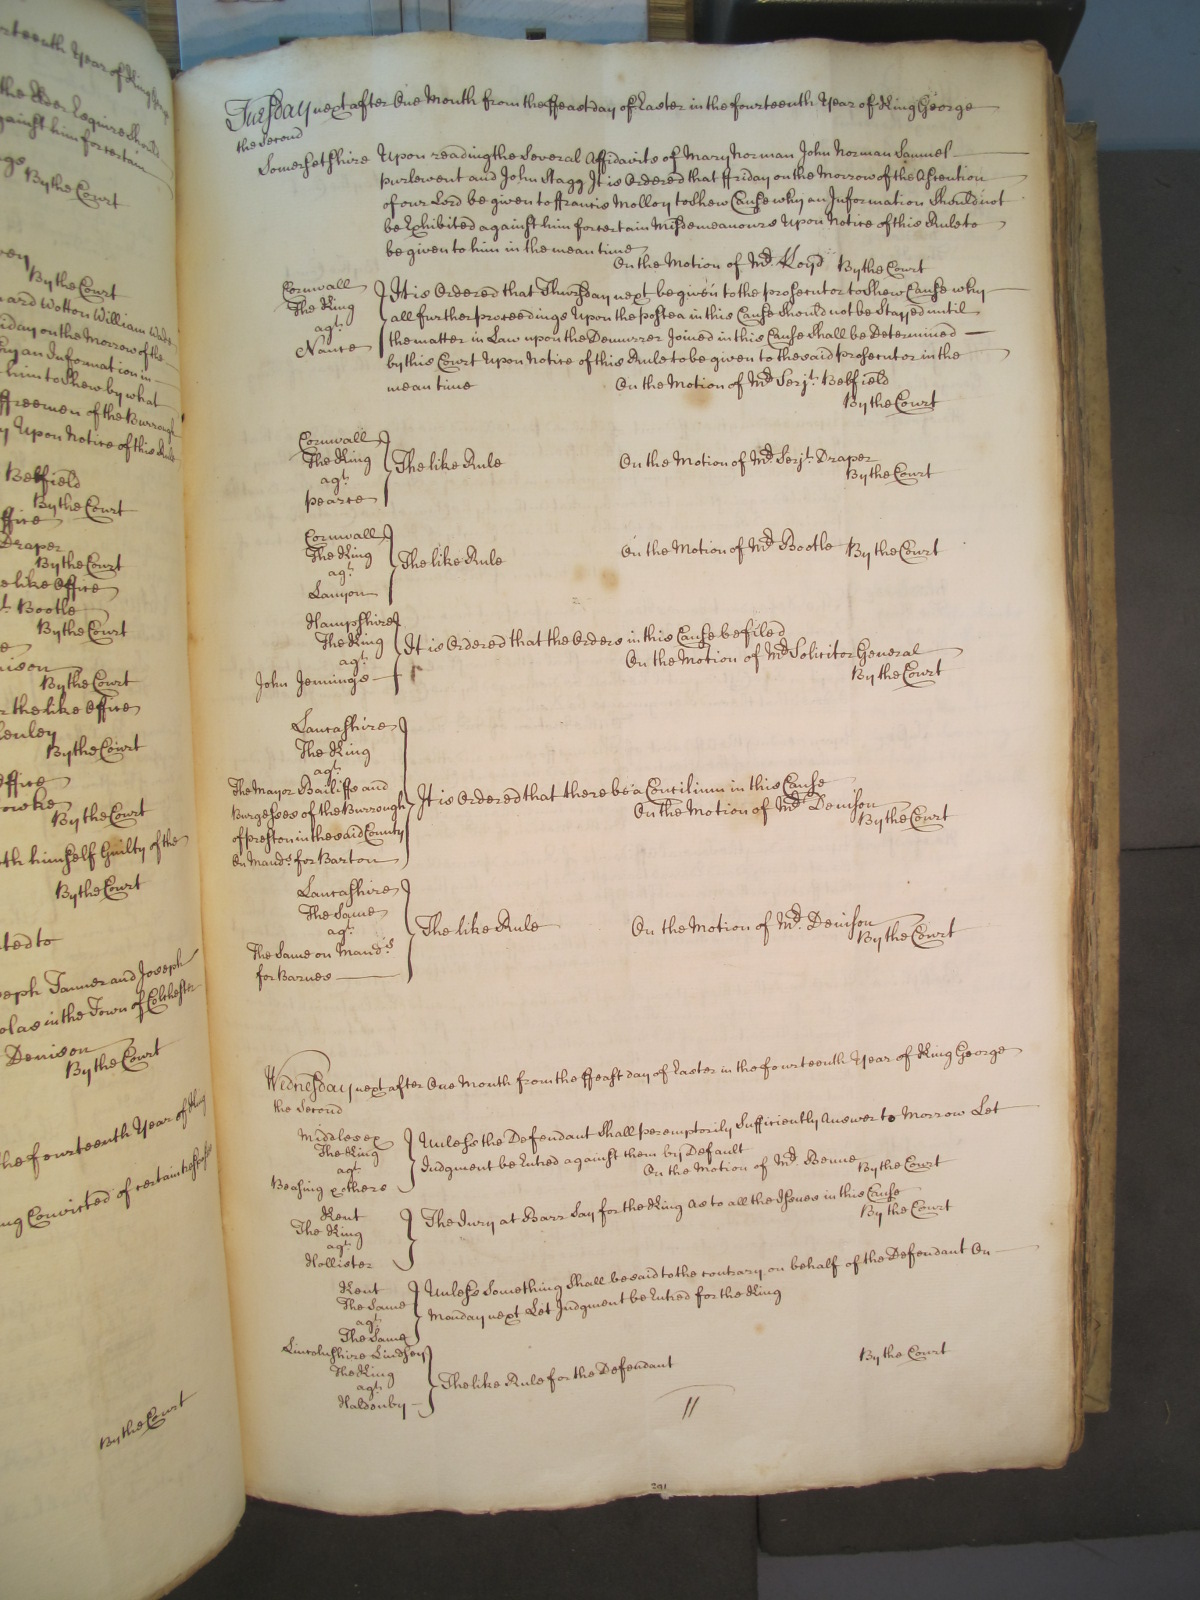 rteenth Year of King
the Elder Esquire Should
against him for certain
By the Court
By the Court
ard Wotton William
riday on the Morrow of the
hy an Information in
him to Shew by what
ffreemen of the Burrough
y Upon Notice of this Rule
Belfield
By the Court
ffice
Draper
By the Court
e like Office
Bootle
By the Court
nison
By the Court
r the like Office
Henley
By the Court
Office
By the Court
th himself Guilty of the
By the Court
ted to
seph Tanner and Joseph
olas in the Town of Colchester
Denison
By the Court
the fourteenth Year of King
ng Convicted of certain trespasses
By the Court
Tuesday next after One Month from the ffeast day of Easter in the fourteenth Year of King George
the Second
Somersetshire Upon reading the Several Affidavits of Mary Norman John Norman Samuel
purlewent and John Stagg It is Ordered that ffriday on the Morrow of the Ascention
of our Lord be given to ffrancis Molloy to Shew Cause why an Information Should not
be Exhibited against him for certain Misdemeanours Upon Notice of this Rule to
be given to him in the mean time
On the Motion of Mr. Lloyd By the Court
Cornwall
The King
agt.
Nance
It is Ordered that Thursday next be given to the prosecutor to Shew Cause why
all further proceedings Upon the postea in this Cause Should not be Stayed until
the matter in Law upon the Demurrer Joined in this Cause Shall be Determined
by this Court Upon Notice of this Rule to be given to the said prosecutor in the
mean time On the Motion of Mr. Serjt. Belfield
By the Court
Cornwall
The King
agt.
Pearce
The like Rule On the Motion of Mr. Serjt. Draper
By the Court
Cornwall
The King
agt.
Lanyon
The like Rule On the Motion of Mr. Bootle By the Court
Hampshire
The King
agt.
John Jennings
It is Ordered that the Orders in this Cause be filed
On the Motion of Mr. Solicitor General
By the Court
Lancashire
The King
agt.
The Mayor Bailiffs and
Burgesses of the Burrough
of Preston in the said County
On Mands. for Barton
It is Ordered that there be a Concilium in this Cause
On the Motion of Mr. Denison
By the Court
Lancashire
The Same
agt.
The Same on Mands.
for Barnes
The like Rule On the Motion of Mr. Denison
By the Court
Wednesday next after One Month from the ffeast day of Easter in the fourteenth Year of King George
the Second
Middlesex
The King
agt.
Beasing & others
Unless the Defendant Shall peremptorily Sufficiently Answer to Morrow Let
Judgment be Entred against them by Default
On the Motion of Mr. Benne By the Court
Kent
The King
agt.
Hollister
The Jury at Barr Say for the King As to all the Issues in this Cause
By the Court
Kent
The Same
agt.
The Same
Unless Something Shall be said to the contrary on behalf of the Defendant On
Monday next Let Judgment be Entred for the King
Lincolnshire Lindsey
The King
agt.
Haldenby
The like Rule for the Defendant
By the Court
291